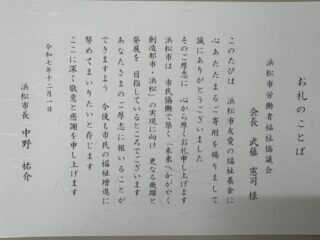 お礼のことば
浜松市労働者福祉協議会
会長 武藤 憲司 様
このたびは 浜松市友愛の福祉基金に
心あたたまるご寄附を賜りまして
誠にありがとうございました
そのご厚志に 心から厚くお礼申し上げます
浜松市は 市民協働で築く「未来へかがやく
創造都市・浜松」の実現に向け 更なる飛躍と
発展を 目指しているところでございます
あなたさまのご厚志に報いることが
できますよう 今後も市民の福祉増進に
努めてまいりたいと存じます
ここに深く敬意と感謝を申し上げます
令和七年十二月一日
浜松市長 中野 祐介